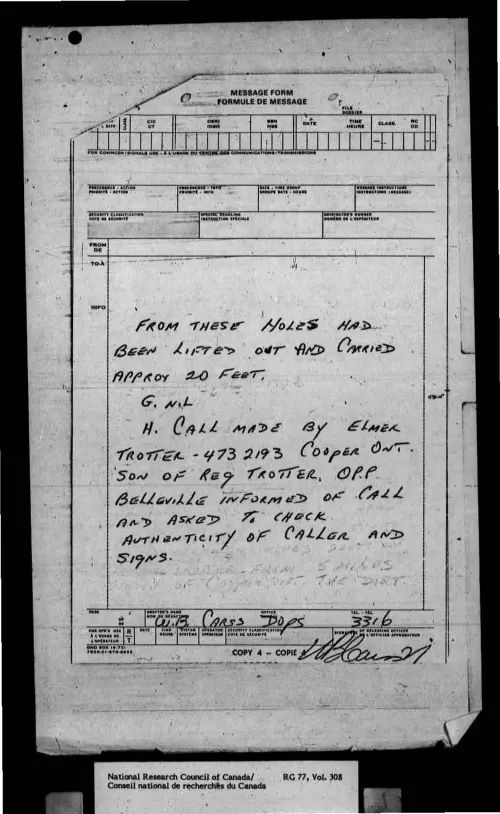 MESSAGE FORM
FORMULE DE MESSAGE
FILE
DOSSIER
CIC
CT
DATE
TIME
HEURE
CLASS.
FOR COMMCEN/SIGNALS USE - À L'USAGE DU CENTRE DES COMMUNICATIONS/TRANSMISSIONS
PRECEDENCE - ACTION
PRIORITÉ - ACTION
PRECEDENCE - INFO
PRIORITÉ - INFO
DATE - TIME GROUP
GROUPE DATE - HEURE
MESSAGE INSTRUCTIONS
INSTRUCTIONS (MESSAGE)
SECURITY CLASSIFICATION
COTE DE SÉCURITÉ
SPECIAL HEADLING
INSTRUCTION SPÉCIALE
ORIGINATOR'S NUMBER
NUMÉRO DE L'EXPÉDITEUR
FROM
DE
TO-À
INFO
FROM THESE HOLES HAD
BEEN LIFTED OUT AND CARRIED
APPROX 20 FEET.
G. NIL
H. CALL MADE BY ELMER
TROTTER - 473 2193 COOPER ONT.
SON OF REG TROTTER, OPP
BELLEVILLE INFORMED OF CALL
AND ASKED TO CHECK
AUTHENTICITY OF CALLER AND
SIGNS.
PAGE
OF
DE
DRAFTER'S NAME
NOM DU RÉDACTEUR
W.B. CARSS
OFFICE
DOPS
TEL. - TÉL.
3316
FOR OPR'S USE
À L'USAGE DE
L'OPÉRATEUR
R
T
DATE
TIME
HEURE
SYSTEM
SYSTÈME
OPERATOR
OPÉRATEUR
SECURITY CLASSIFICATION
COTE DE SÉCURITÉ
SIGNATURE OF RELEASING OFFICER
COPY 4 - COPIE 4
National Research Council of Canada/ RG 77, Vol. 308
Conseil national de recherchès du Canada